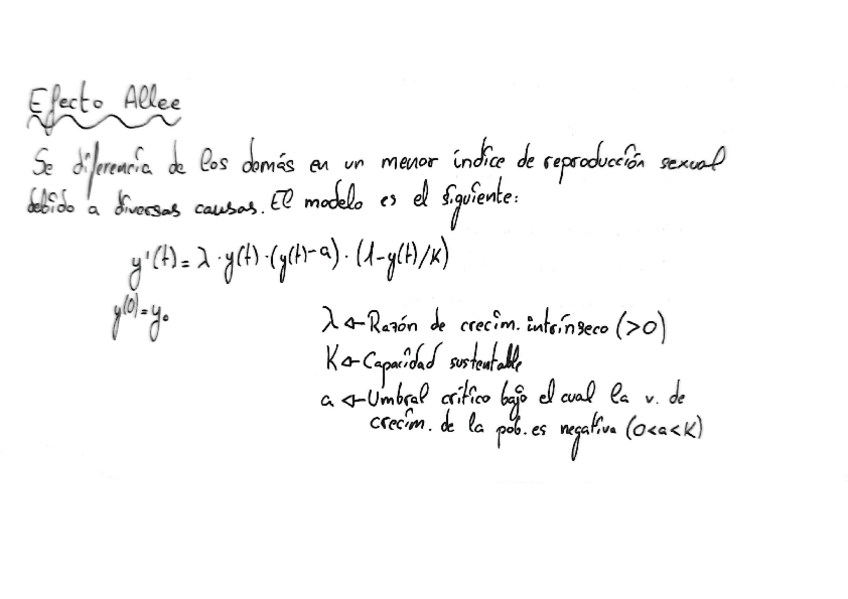 Efecto Allee
Se diferencía de los demás en un menor índice de reproducción sexual
debido a diversas causas. El modelo es el siguiente:
y'(t) = λ · y(t) · (y(t) - a) · (1 - y(t)/K)
y(0) = y₀
λ ← Razón de crecim. intrínseco (>0)
K ← Capacidad sustentable
a ← Umbral crítico bajo el cual la v. de
crecim. de la pob. es negativa (0<a<K)